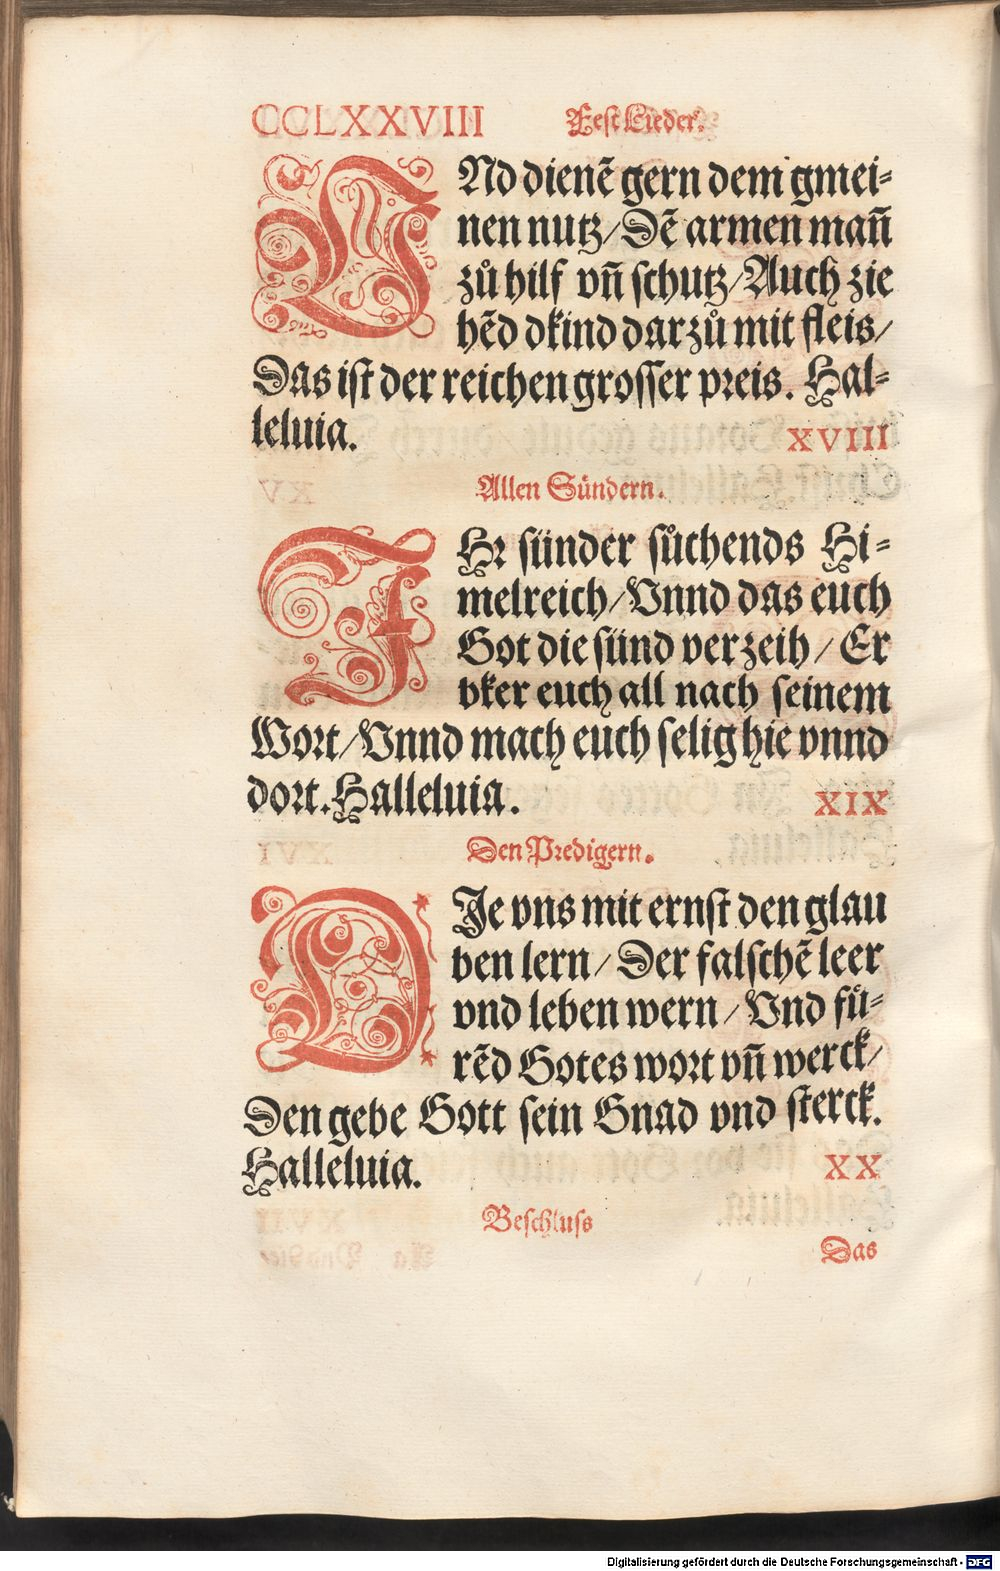 CCLXXVIII Fest Lieder.
VNd dienẽ gern dem gmei⸗
nen nutz/Dẽ armen mañ
zů hilf vñ schutz/Auch zie
hẽd dkind darzů mit fleis/
Das ist der reichen grosser preis. Hal⸗
leluia. XVIII
Allen Sündern.
IHr sünder sůchends Hi⸗
melreich/Vnnd das euch
Got die sünd verzeih/Er
vker euch all nach seinem
Wort/Vnnd mach euch selig hie vnnd
dort. Halleluia. XIX
Den Predigern.
DIe vns mit ernst den glau
ben lern/Der falschẽ leer
vnd leben wern/Vnd fů⸗
rẽd Gotes wort vñ werck/
Den gebe Gott sein Gnad vnd sterck.
Halleluia. XX
Beschluss
Das
Digitalisierung gefördert durch die Deutsche Forschungsgemeinschaft - DFG